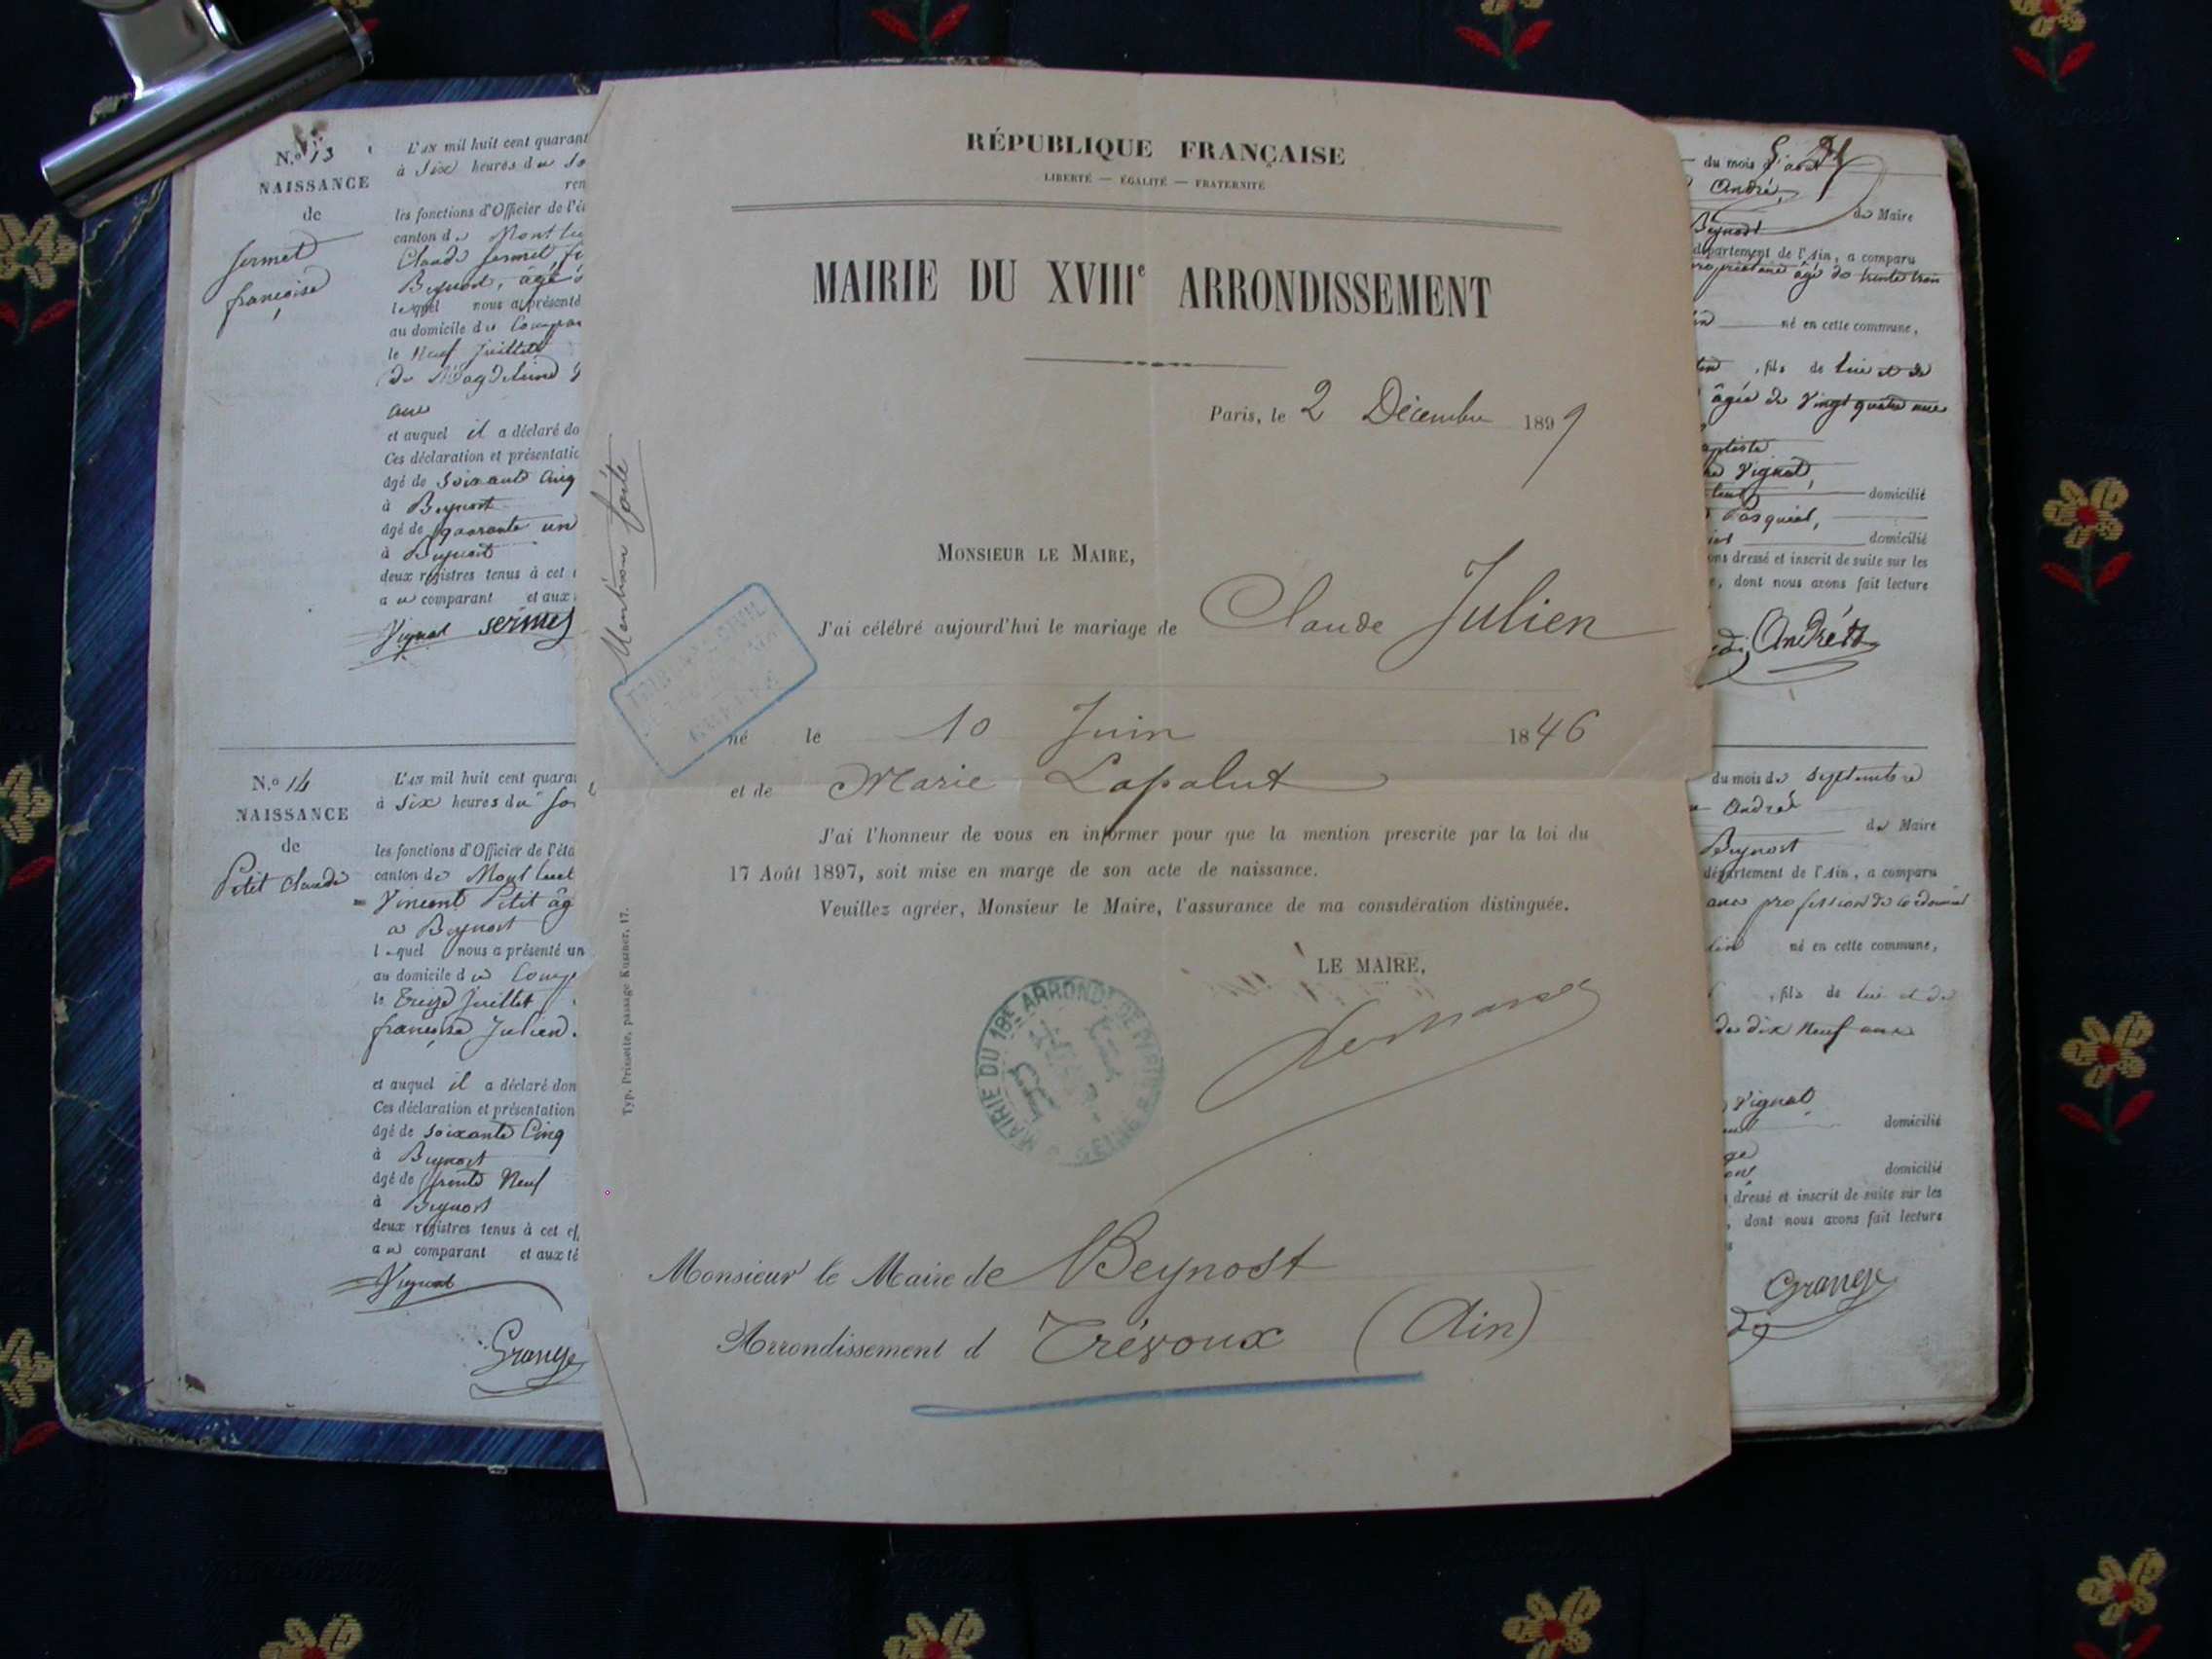 N.º 13
NAISSANCE
de
Sermet
françoise
L'AN mil huit cent quarant
à Six heures du So
ren
les fonctions d'Officier de l'ét
canton de Montlu
Claude Sermet, 
Beynost, âgé
lequel nous a présenté
au domicile du Compar
le Neuf Juillet
de Magdeleine
ans
et auquel il a déclaré do
Ces déclaration et présentatio
âgé de Soixante Cinq
à Beynost
âgé de quarante un
à Beynost
deux registres tenus à cet
au comparant et aux
Vignat Sermet
N.º 14
NAISSANCE
de
Petit Claude
L'AN mil huit cent quara
à Six heures du Soi
les fonctions d'Officier de l'éta
canton de Montluel
Vincent Petit âg
à Beynost
lequel nous a présenté un
au domicile du Comp
le Treize Juillet
françoise Julien.
et auquel il a déclaré don
Ces déclaration et présentation
âgé de Soixante Cinq
à Beynost
âgé de trente Neuf
à Beynost
deux registres tenus à cet ef
au comparant et aux té
Vignat
Grange
RÉPUBLIQUE FRANÇAISE
LIBERTÉ — ÉGALITÉ — FRATERNITÉ
MAIRIE DU XVIIIe ARRONDISSEMENT
Paris, le 2 Décembre 1899
Mention faite
MONSIEUR LE MAIRE,
J'ai célébré aujourd'hui le mariage de Claude Julien
né le 10 Juin 1846
et de Marie Lapalut
J'ai l'honneur de vous en informer pour que la mention prescrite par la loi du
17 Août 1897, soit mise en marge de son acte de naissance.
Veuillez agréer, Monsieur le Maire, l'assurance de ma considération distinguée.
LE MAIRE,
MAIRIE DU 18E ARRONDT DE PARIS
SEINE
Typ. Prissette, passage Kuszner, 17.
Monsieur le Maire de Beynost
Arrondissement d Trévoux (Ain)
du mois d'août
André
de Maire
Beynost
département de l'Ain, a comparu
propriétaire âgé de trente trois
né en cette commune,
, fils de lui et de
âgée de Vingt quatre ans
Vignat,
domicilié
Pasquiel,
domicilié
ons dressé et inscrit de suite sur les
, dont nous avons fait lecture
André
du mois de Septembre
André
de Maire
Beynost
département de l'Ain, a comparu
ans profession de Cordonnier
né en cette commune,
, fils de lui et de
de dix Neuf ans
Vignat
domicilié
domicilié
dressé et inscrit de suite sur les
, dont nous avons fait lecture
Grange